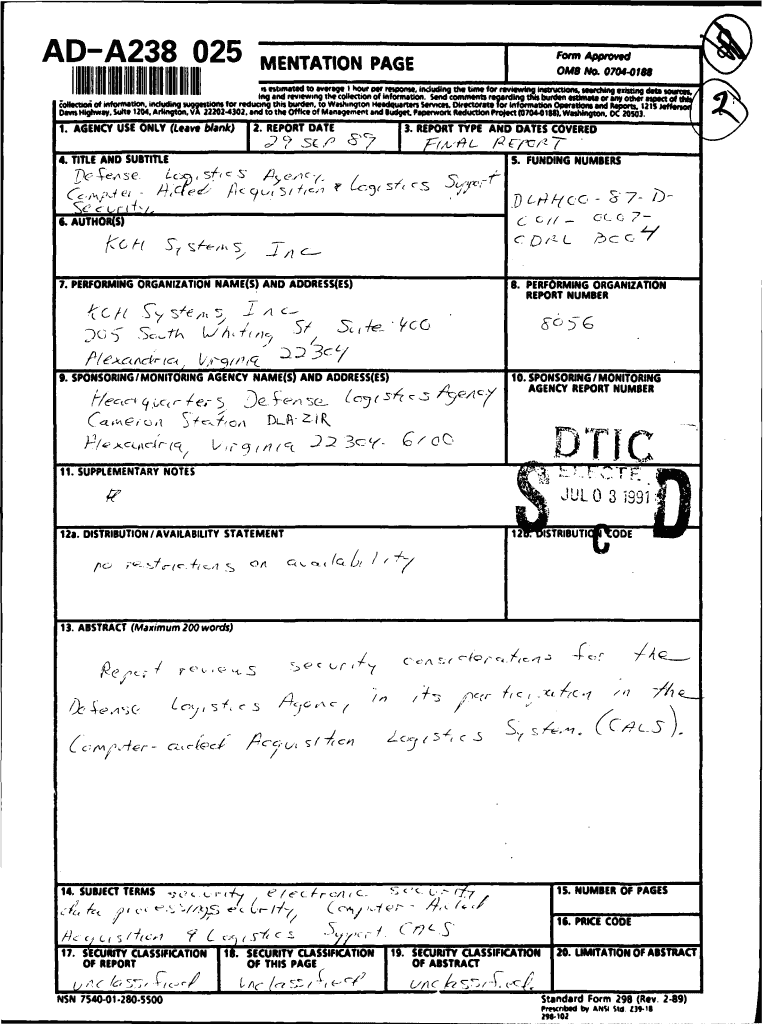 AD-A238 025
MENTATION PAGE
Form Approved
OMB No. 0704-0188
2
is estimated to average 1 hour per response, including the time for reviewing instructions, searching existing data sources,
ing and reviewing the collection of information. Send comments regarding this burden estimate or any other aspect of this
collection of information, including suggestions for reducing this burden, to Washington Headquarters Services, Directorate for Information Operations and Reports, 1215 Jefferson
Davis Highway, Suite 1204, Arlington, VA 22202-4302, and to the Office of Management and Budget, Paperwork Reduction Project (0704-0188), Washington, DC 20503.
1. AGENCY USE ONLY (Leave blank)
2. REPORT DATE
29 SEP 89
3. REPORT TYPE AND DATES COVERED
FINAL REPORT
4. TITLE AND SUBTITLE
Defense Logistics Agency
Computer-Aided Acquisition & Logistics Support
Security.
5. FUNDING NUMBERS
DLAH00-87-D-
0011-0007-
CDRL B004
6. AUTHOR(S)
KOH Systems, Inc
7. PERFORMING ORGANIZATION NAME(S) AND ADDRESS(ES)
KOH Systems, Inc
205 South Whiting St, Suite 400
Alexandria, Virginia 22304
8. PERFORMING ORGANIZATION
REPORT NUMBER
8056
9. SPONSORING/MONITORING AGENCY NAME(S) AND ADDRESS(ES)
Headquarters Defense Logistics Agency
Cameron Station DLA-ZIR
Alexandria, Virginia 22304-6100
10. SPONSORING/MONITORING
AGENCY REPORT NUMBER
DTIC
ELECTE
JUL 03 1991
S C D
11. SUPPLEMENTARY NOTES
12a. DISTRIBUTION/AVAILABILITY STATEMENT
no restrictions on availability
12b. DISTRIBUTION CODE
13. ABSTRACT (Maximum 200 words)
Report reviews security considerations for the
Defense Logistics Agency in its participation in the
Computer-aided Acquisition Logistics System. (CALS).
14. SUBJECT TERMS security electronic security
data processing security, Computer-Aided
Acquisition & Logistics Support CALS
15. NUMBER OF PAGES
16. PRICE CODE
17. SECURITY CLASSIFICATION
OF REPORT
unclassified
18. SECURITY CLASSIFICATION
OF THIS PAGE
unclassified
19. SECURITY CLASSIFICATION
OF ABSTRACT
unclassified.
20. LIMITATION OF ABSTRACT
NSN 7540-01-280-5500
Standard Form 298 (Rev. 2-89)
Prescribed by ANSI Std. Z39-18
298-102